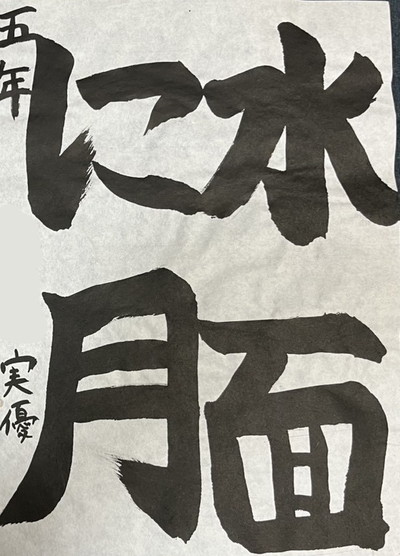 水面
に月
五年 実優